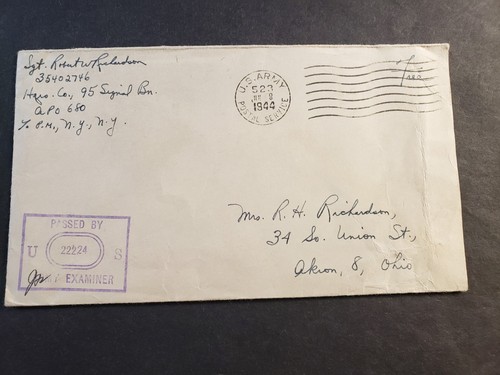 Sgt. Robert W. Richardson
35402746
Hqrs. Co., 95 Signal Bn.
APO 680
c/o P.M., N.Y., N.Y.
U.S. ARMY
523
1944
POSTAL SERVICE
Free
Mrs. R. H. Richardson,
34 So. Union St.,
Akron, 8, Ohio
PASSED BY
U 22224 S
EXAMINER